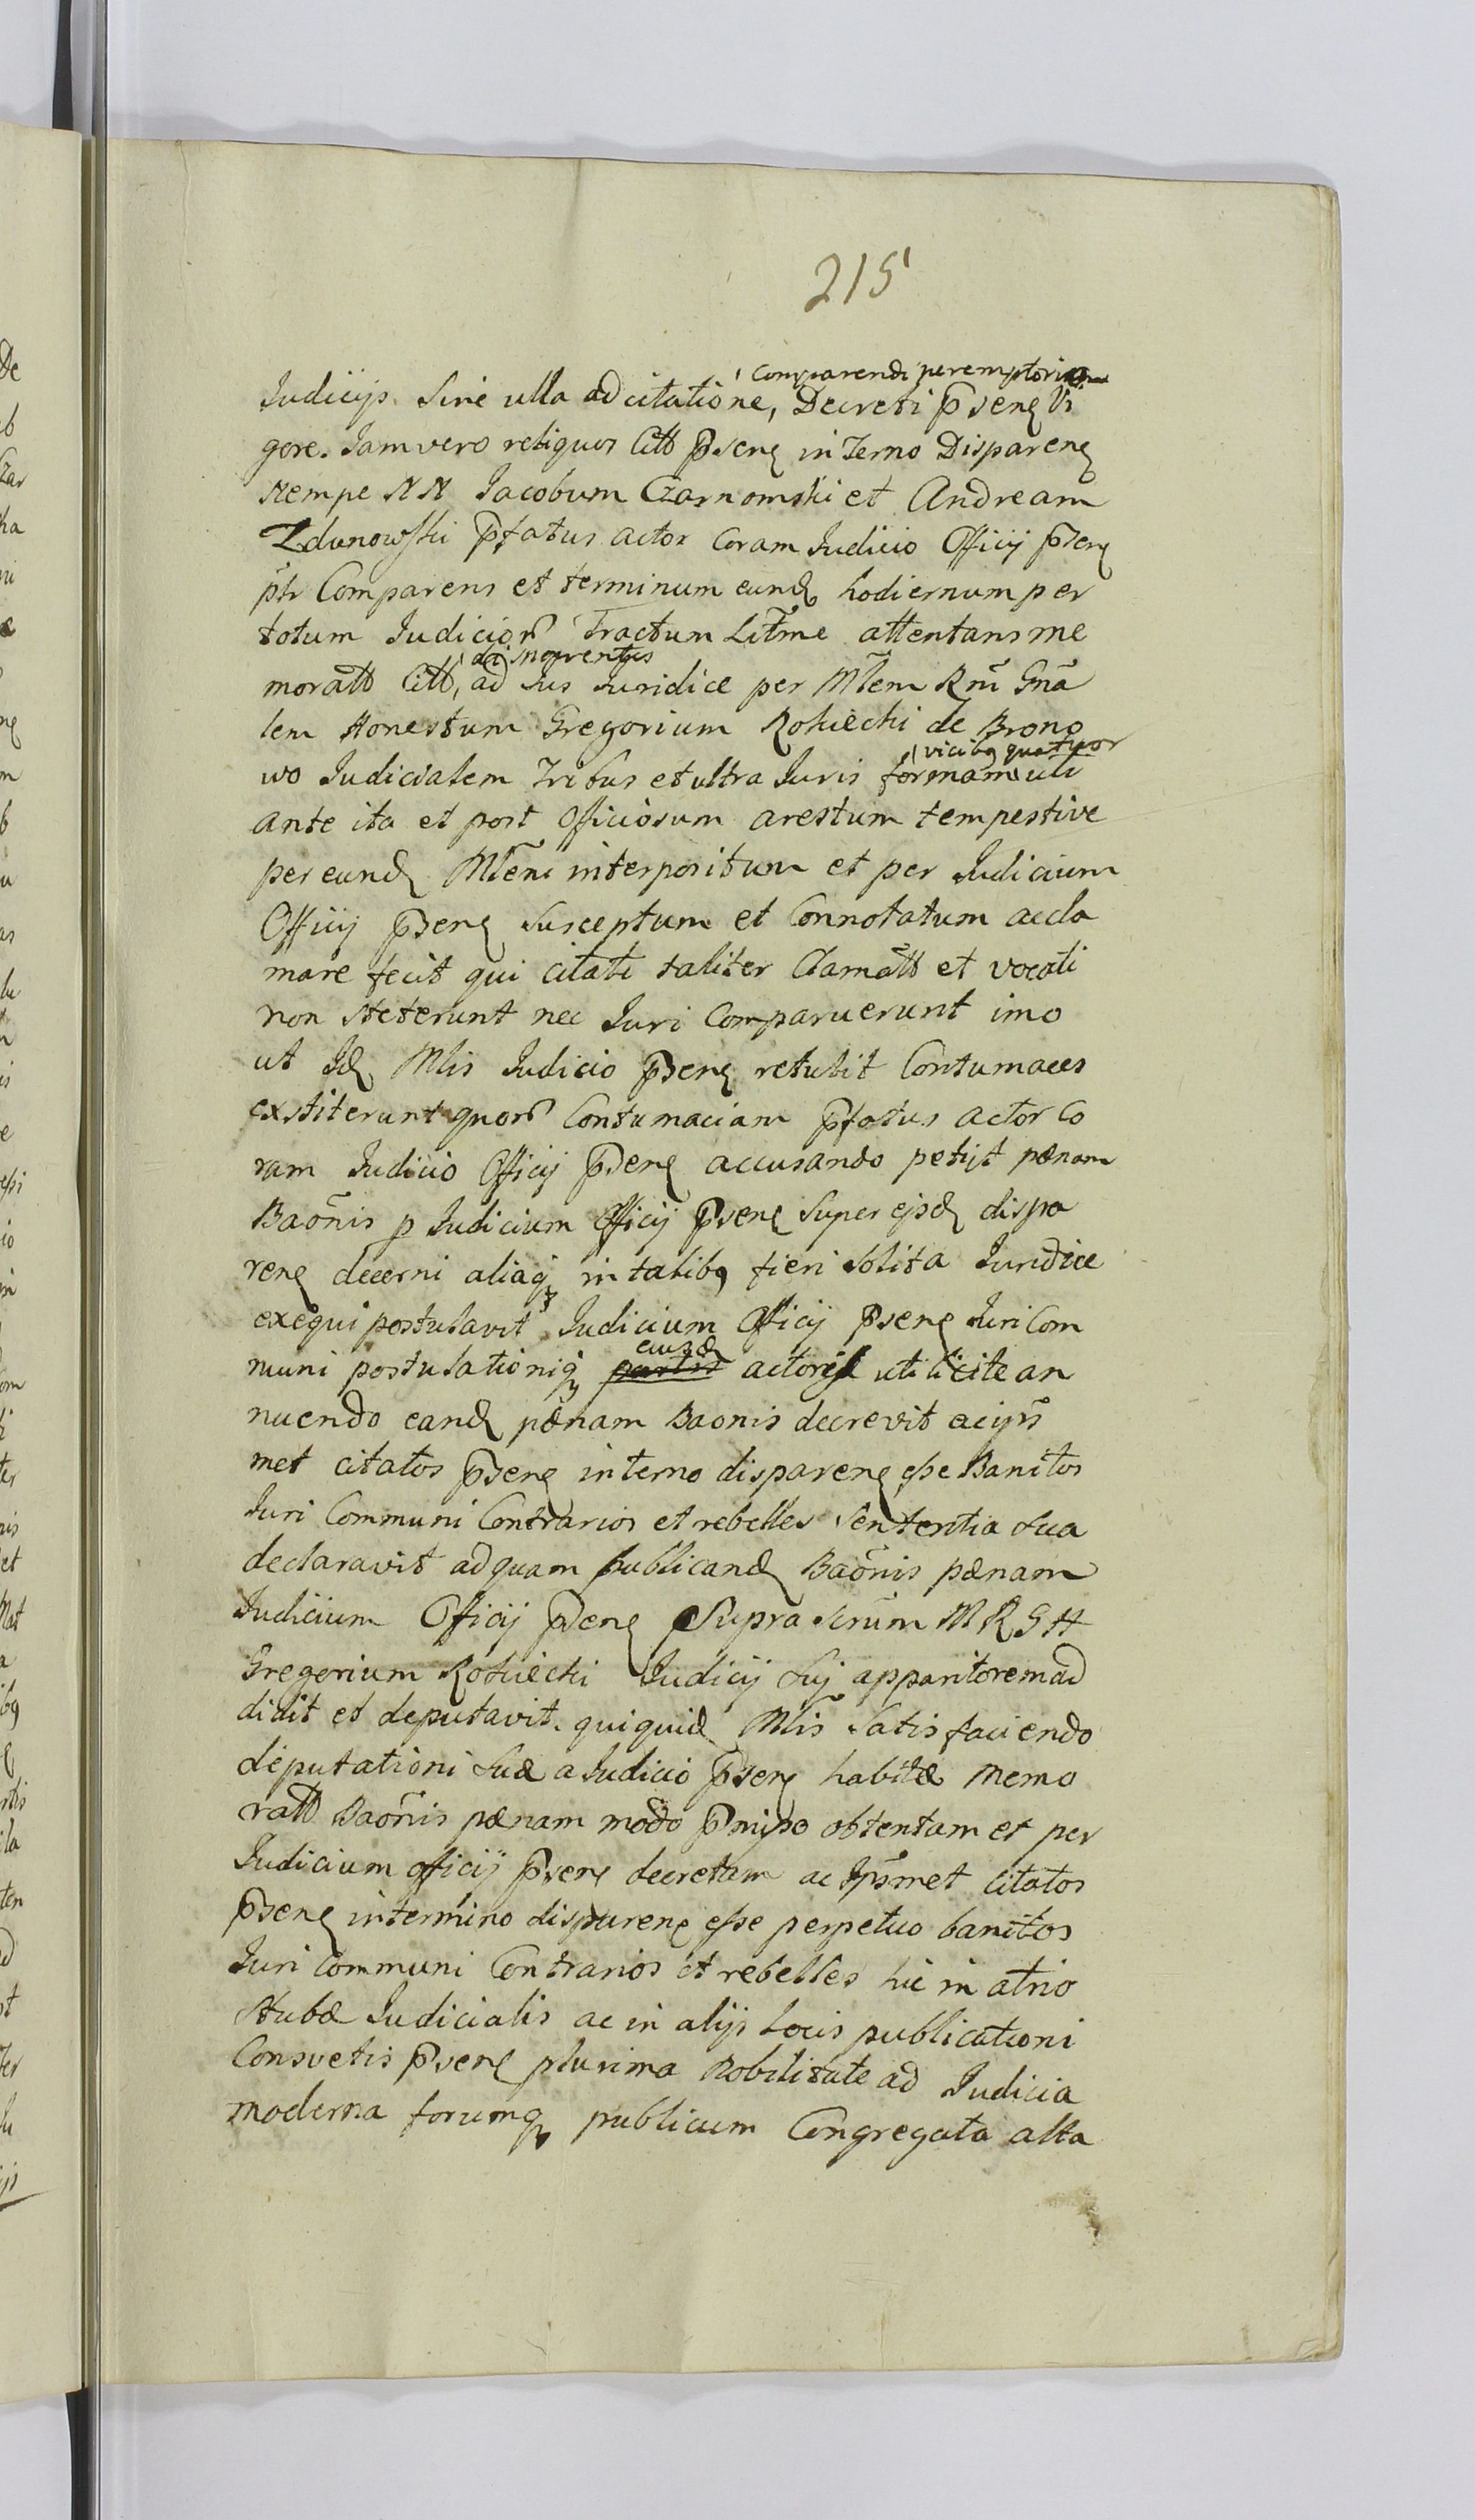 215
comparendi peremptorium
Judicijs. Sine ulla ad citatione, Decreti pñsenę Vi
gore. Jam vero reliquos Citt pñsenę in Terno Disparenę
nempe NN Jacobum Czarnomski et Andream
Zdunowski pfatus actor Coram Judicio Officij pñsenę
ptr Comparens et terminum eund hodiernum per
totum Judicior Tractum Litme attentans me
moratt Citt, ad Jus Juridice per Mtem Rni Gna
lem Honestum Gregorium Rokiecki de Brono
vicibq quatuor
wo Judicialem Tribus et ultra Juris formam uti
ante ita et post Officiosum arestum tempestive
per eund Mtem interpositum et per Judicium
Officij pñsenę Susceptum et Connotatum accla
mare fecit qui citati taliter Clamatt et vocati
non steterunt nec Juri Comparuerunt imo
ut Id Mlis Judicio pñsenę retulit Contumaces
exstiterunt quor Contumaciam pfatus actor Co
ram Judicio Officij pñsenę accusando petijt pænam
Baõnis p Judicium Officij pñsenę Super ejsd dispa
renę decerni aliaq in talibq fieri Solita Juridice
exequi postulavit Judicium Officij pñsenę Juri Com
eiusd
muni postulationiq partis actoris uti licite an
nuendo eand pænam Baonis decrevit ac ips
met citatos pñsenę in terno disparenę esse Banitos
Juri Communi Contrarios et rebelles Sententia Sua
declaravit ad quam publicand Baõnis pænam
Judicium Officij pñsenę Supra Scrum M R G H
Gregorium Rokiecki Judicij Suj apparitorem ad
didit et deputavit. qui quid Mlis Satis faciendo
deputationi Suæ a Judicio pñsenę habitæ Memo
ratt Baõnis pænam modo pmisso obtentam et per
Judicium officij pñsenę decretam ac Ipsmet Citatos
pñsenę in termino disparenę esse perpetuo banitos
Juri Communi Contrarios et rebelles hic in atrio
Stubæ Judicialis ac in alijs Locis publicationi
Consvetis pñsenę plurima Nobilitate ad Judicia
moderna forumq publicum Congregata alta